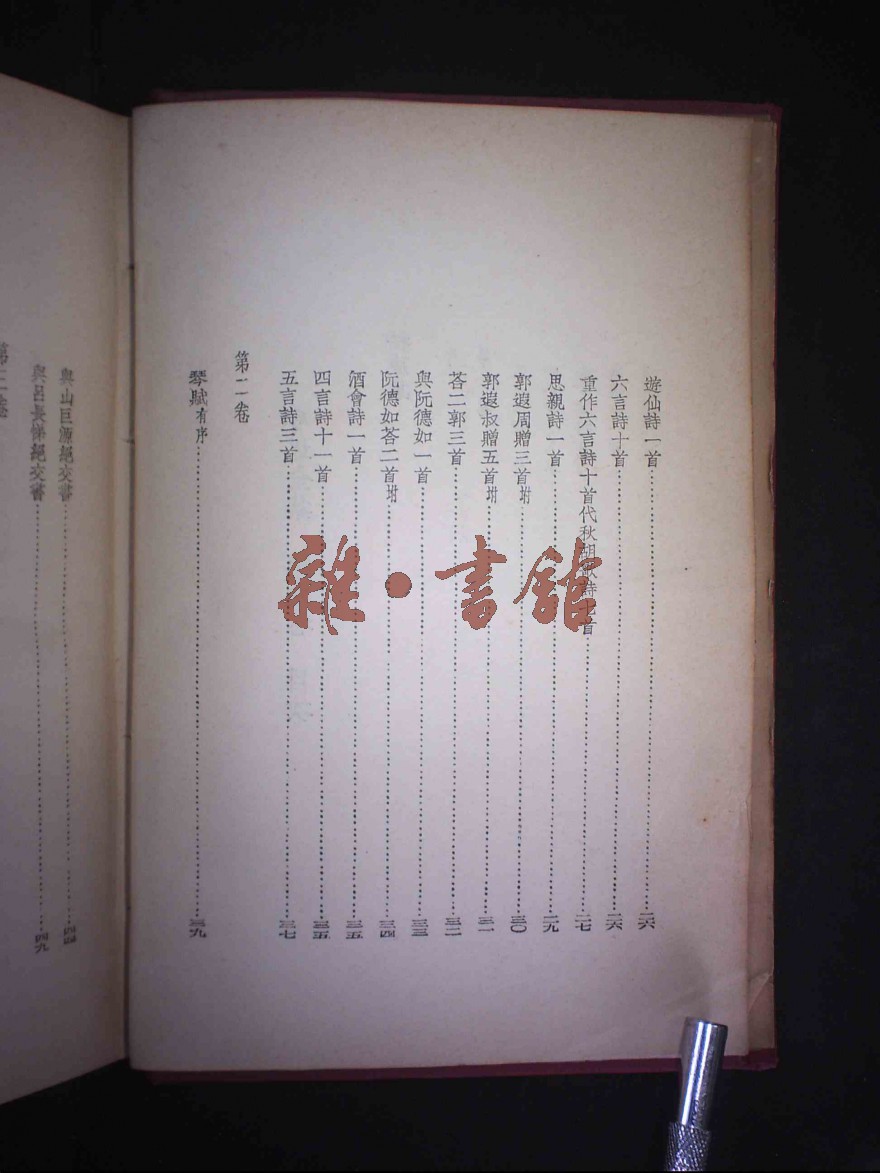 遊仙詩一首……二六
六言詩十首……二六
重作六言詩十首代秋胡歌詩七首……二七
思親詩一首……二九
郭遐周贈三首坿……三〇
郭遐叔贈五首坿……三一
荅二郭三首……三二
與阮德如一首……三三
阮德如荅二首坿……三四
酒會詩一首……三五
四言詩十一首……三五
五言詩三首……三七
第二卷
琴賦有序……三九
與山巨源絕交書……四四
與呂長悌絕交書……四九
雜·書館